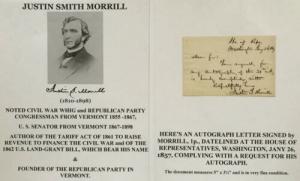 JUSTIN SMITH MORRILL
Justin S. Morrill
(1810-1898)
NOTED CIVIL WAR WHIG and REPUBLICAN PARTY
CONGRESSMAN FROM VERMONT 1855-1867,
U. S. SENATOR FROM VERMONT 1867-1898
AUTHOR OF THE TARIFF ACT OF 1861 TO RAISE
REVENUE TO FINANCE THE CIVIL WAR and OF THE
1862 U.S. LAND-GRANT BILL, WHICH BEAR HIS NAME
&
FOUNDER OF THE REPUBLICAN PARTY IN
VERMONT.
Ho of Reps
Washington
Dear Sir:
Your request for
Justin S. Morrill
HERE'S AN AUTOGRAPH LETTER SIGNED by
MORRILL, 1p., DATELINED AT THE HOUSE OF
REPRESENTATIVES, WASHINGTON, JANY 26,
1857, COMPLYING WITH A REQUEST FOR HIS
AUTOGRAPH.
The document measures 5" x 3½" and is in very fine condition.